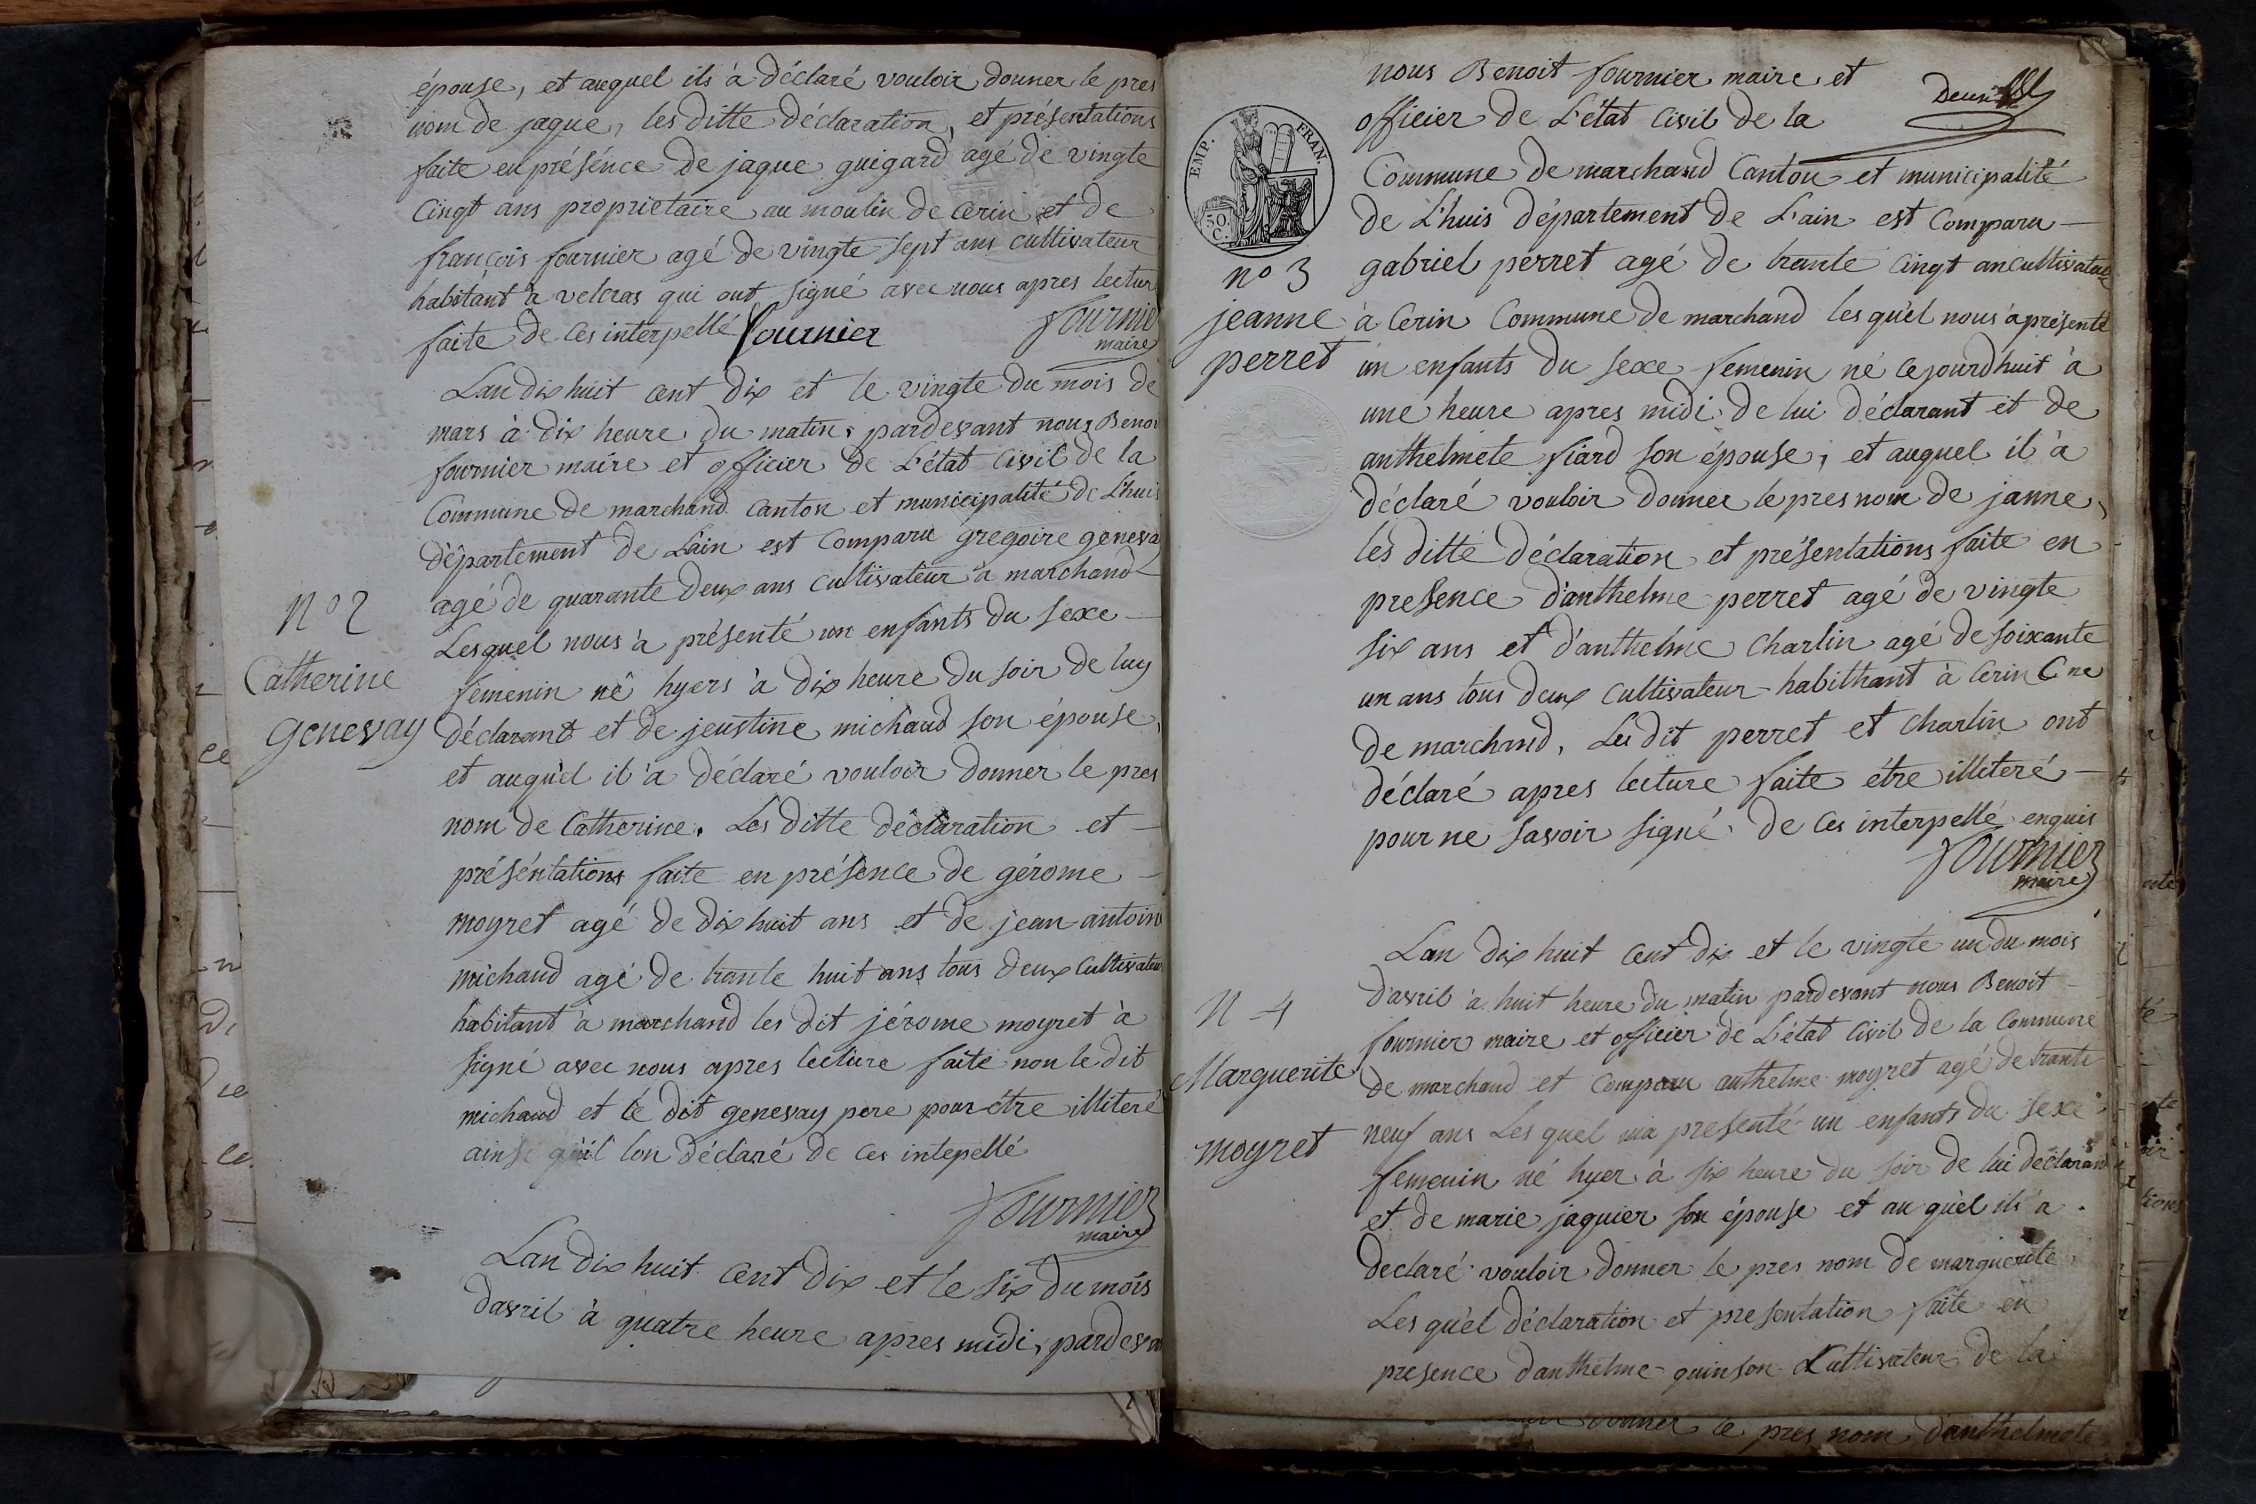 épouse, et auquel ils à déclaré vouloir donner le pres
nom de jaque, les ditte déclaration, et présentations
faite en présénce de jaque guigard agé de vingte
Cinqt ans proprietaire au moulin de Cerin et de
françois fournier agé de vingte sept ans cultivateur
habitant à velcras qui ont signé avec nous apres lectur
faite de ces interpellé fournier
fournier
maire
Lan dix huit cent dix et le vingte du mois de
mars à dix heure du matin, pardevant nous Benoi
fournier maire et officier de L'état Civil de la
Commune de marchand Canton et municipalité de Lhuis
département de Lain est Comparu gregoire geneva
agé de quarante deux ans cultivateur à marchand
N° 2
Catherine
genevay
Lesquel nous à présenté un enfants du sexe
femenin né hyers à dix heure du soir de luy
déclarant et de jeustine michaud son épouse,
et auquel il à déclaré vouloir donner le pres
nom de Catherine. Les ditte déclaration et
présentations faite en présence de gérome
moyret agé de dix huit ans et de jean antoine
michaud agé de trante huit ans tous deux Cultivateur
habitant à marchand les dit jérome moyret à
signé avec nous apres lecture faite non le dit
michaud et le dit genevay pere pour étre illiteré
ainsi qu'il lon déclaré de ces intepellé
fournier
maire
Lan dix huit cent dix et le six du mois
davril à quatre heure apres midi, pardeva
nous Benoit fournier maire et
officier de L'état Civil de la
Commune de marchand Canton et municipalité
de L'huis département de L'ain est Comparu
EMP. FRAN.
50
C.
n° 3
jeanne
perret
gabriel perret agé de trante Cinqt an cultivateur
à Cerin Commune de marchand les qu'el nous à présenté
un enfants du sexe femenin né cejourdhuit à
une heure apres midi de lui déclarant et de
anthelmete fiard son épouse, et auquel il à
déclaré vouloir donner le pres nom de janne,
les ditte déclaration et présentations faite en
presence d'anthelme perret agé de vingte
six ans et d'anthelme Charlin agé de soixante
un ans tous deux Cultivateur habithant à Cerin Cne
de marchand, Les dit perret et Charlin ont
déclaré apres lecture faite étre illiteré
pour ne savoir signé de ces interpellé enquis
fournier
maire
Lan dix huit cent dix et le vingte un du mois
d'avril à huit heure du matin pardevant nous Benoit
fournier maire et officier de L'état Civil de la Commune
de marchand et Comparu anthelme moyret agé de trante
N 4
Marguerite
moyret
neuf ans Les quel ma presenté un enfants du sexe
femenin né hyer à six heure du soir de lui déclarant
et de marie jaquier son épouse et au quel ils a
declaré vouloir donner le pres nom de marguerite
Les quel déclaration et presentation faite en
presence d'anthelme quinson Cultivateur de la
donner le pres nom d'anthelmete